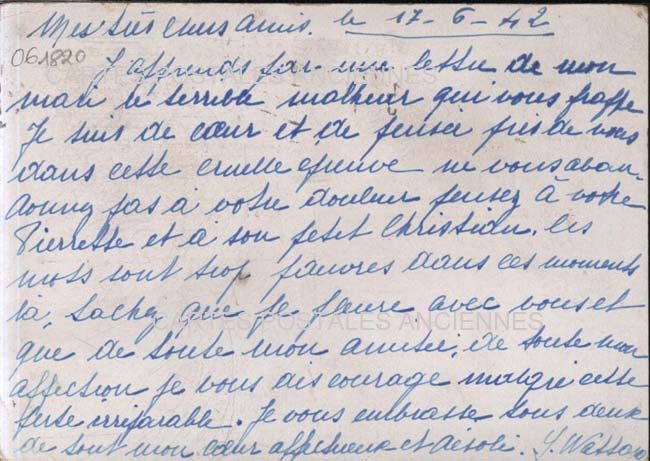 Mes très chers amis. le 17-6-42
061820
J'apprends par une lettre de mon
mari le terrible malheur qui vous frappe
Je suis de cœur et de pensée près de vous
dans cette cruelle épreuve ne vous aban-
donnez pas à votre douleur pensez à votre
Pierrette et à son petit Christian. Les
mots sont trop pauvres dans ces moments
là, Sachez que je pleure avec vous et
CARTES POSTALES ANCIENNES
que de toute mon amitié, de toute mon
affection je vous dis courage malgré cette
perte irréparable. Je vous embrasse tous deux
de tout mon cœur affectueux et désolé. Y.